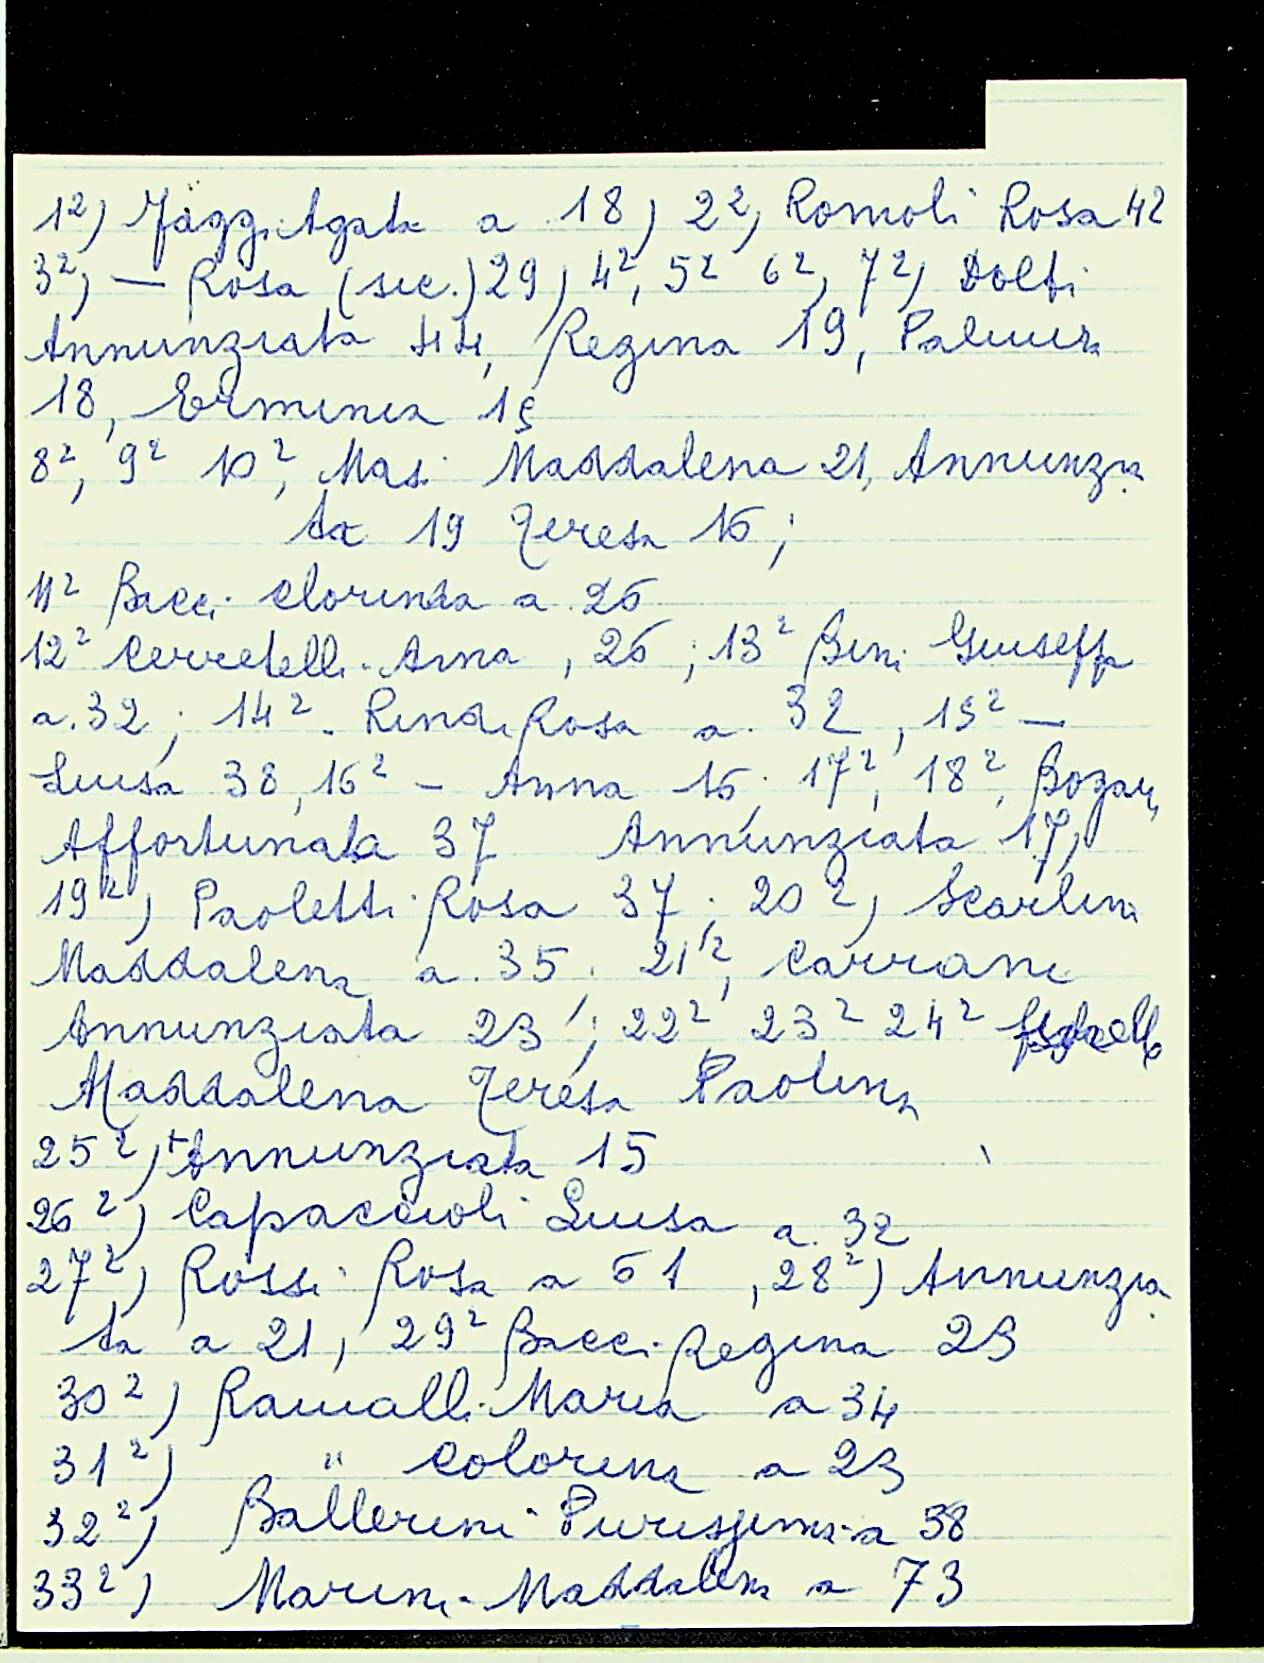 1²) Jaggi Agata a 18) 2²) Romoli Rosa 42
3²) — Rosa (sic.) 29) 4², 5² 6², 7²) Dolfi
Annunziata 44, Regina 19, Palmira
18, Erminia 15
8², 9² 10², Masi Maddalena 21, Annunzia
ta 19 Teresa 16;
11² Bacci Clorinda a 26
12² Cerretelli Anna, 26; 13² Bini Giuseppa
a. 32; 14². Rindi Rosa a. 32, 15² —
Luisa 38, 16² – Anna 16; 17², 18²,
Affortunata 37 Annunziata 17,
19²) Paoletti Rosa 37; 20²) Scarlini
Maddalena a. 35. 21², Carrani
Annunziata 23; 22² 23² 24²
Maddalena Teresa Paolina
25²) + Annunziata 15
26²) Capaccioli Luisa a. 32
27²) Rossi Rosa a 61, 28²) Annunzia
ta a 21, 29² Bacci Regina 23
30²) Ramalli Maria a 34
31²) " Colorina a 23
32²) Ballerini Purissima a 38
33²) Marini Maddalena a 73